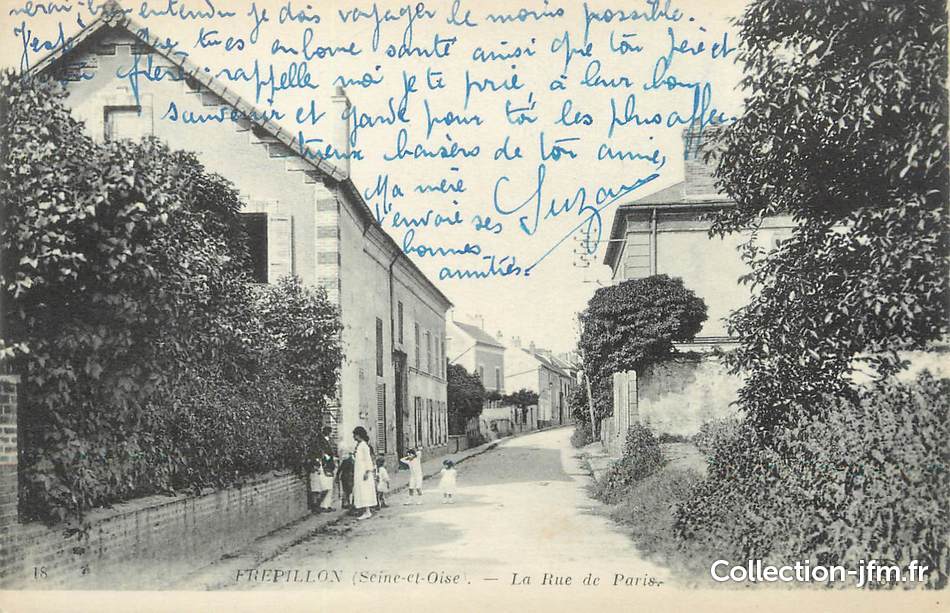 verai bien entendu je dois voyager le moins possible.
J'espère que tu es en bonne santé ainsi que ton père et
ton frère, rappelle moi je te prie, à leur bon
souvenir et garde pour toi les plus affec-
tueux baisers de ton amie,
Suzan
Ma mère
t'envoie ses
bonnes
amitiés.
18 FREPILLON (Seine-et-Oise). — La Rue de Paris.
www.Collection-jfm.fr